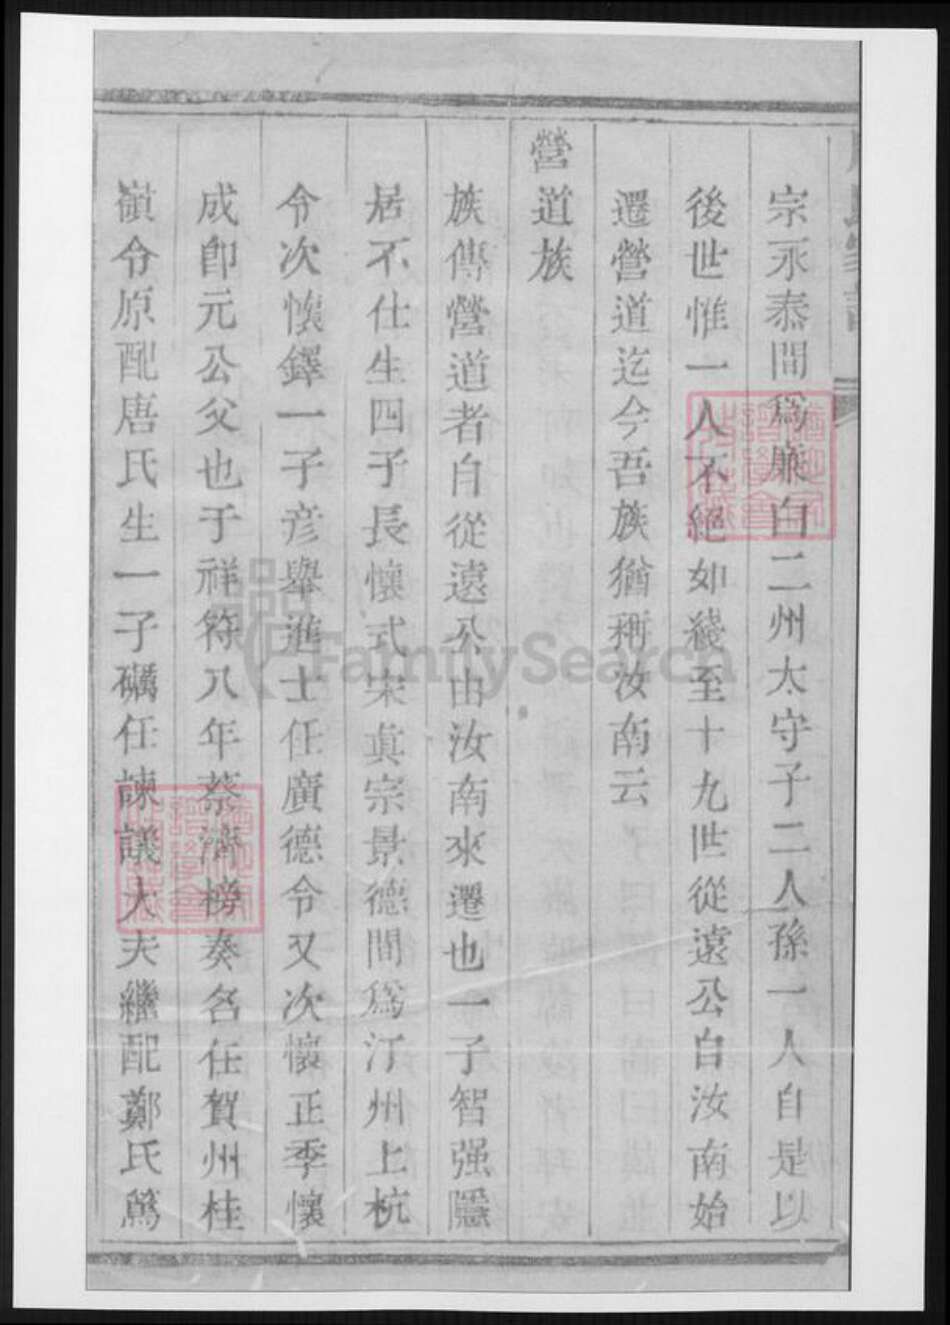 宗永泰間爲廉白二州太守子二人孫一人自是以
後世惟一人不絕如綫至十九世從遠公自汝南始
遷營道迄今吾族猶稱汝南云
營道族
族傳營道者自從遠公由汝南來遷也一子智强隱
居不仕生四子長懷式宋眞宗景德間爲汀州上杭
令次懷鐸一子彥舉進士任廣德令又次懷正季懷
成卽元公父也于祥符八年蔡濟榜奏名任賀州桂
嶺令原配唐氏生一子礪任諫議大夫繼配鄭氏
FamilySearch